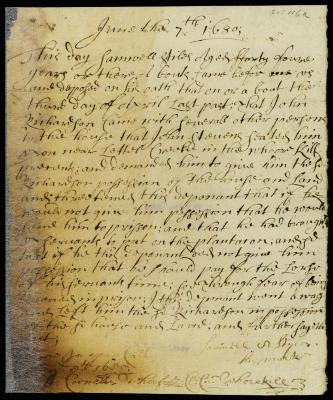 June the 7th 1680:
This day Samwell Stiles Aged fforty foure
years or there a bout; Came before us
and deposed on his oath that on or a bout the
third day of Aprill Last past: that John
Richardson Came with severall other persons
to the house that John Stevens seated him
upon near Letter Creeke in the whore Kill
and demanded him to give him the sd
Richardson possession of the house and land
and threatned this deponant that if he
would not give him possession that he would
send him to prison: and that he had brought
servants to put on the plantation: and
if he this deponant did not give him
possession that he should pay for the Losse
of his servants time; so through fear of being
in prison: I this deponant went away
and left him the sd Richardson in possession
of the sd house and Land: and further saith
not
Samuell S Styles
his marke